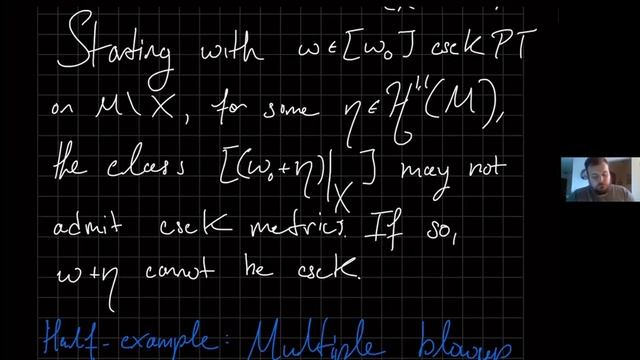 Starting with ω ∈ [ω₀] cscK PT
on M \ X, for some η ∈ ℋ¹,¹(M),
the class [(ω₀+η)|_X] may not
admit cscK metrics. If so,
ω+η cannot be cscK.
Half-example: Multiple blowup